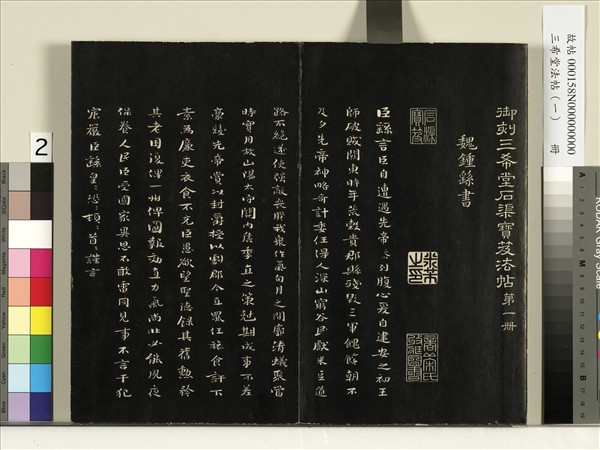 故帖 000158N000000000
三希堂法帖（一） 冊
御刻三希堂石渠寶笈法帖第一冊
魏鍾繇書
臣繇言臣自遭遇先帝忝列腹心爰自建安之初王
師破賊關東時年荒穀貴郡縣殘毀三軍餽饟朝不
及夕先帝神略奇計委任得人深山窮谷民獻米豆道
路不絕遂使強敵喪膽我眾作氣旬月之間廓清蟻聚當
時實用故山陽太守關內侯季直之策剋期成事不差
豪髮先帝賞以封爵授以劇郡今直罷任旅食許下
素為廉吏衣食不充臣愚欲望聖德錄其舊勳矜
其老困復俾一州俾圖報效直力氣尚壯必能夙夜
保養人民臣受國家異恩不敢雷同見事不言干犯
宸嚴臣繇皇:恐:頓:首:謹言
2